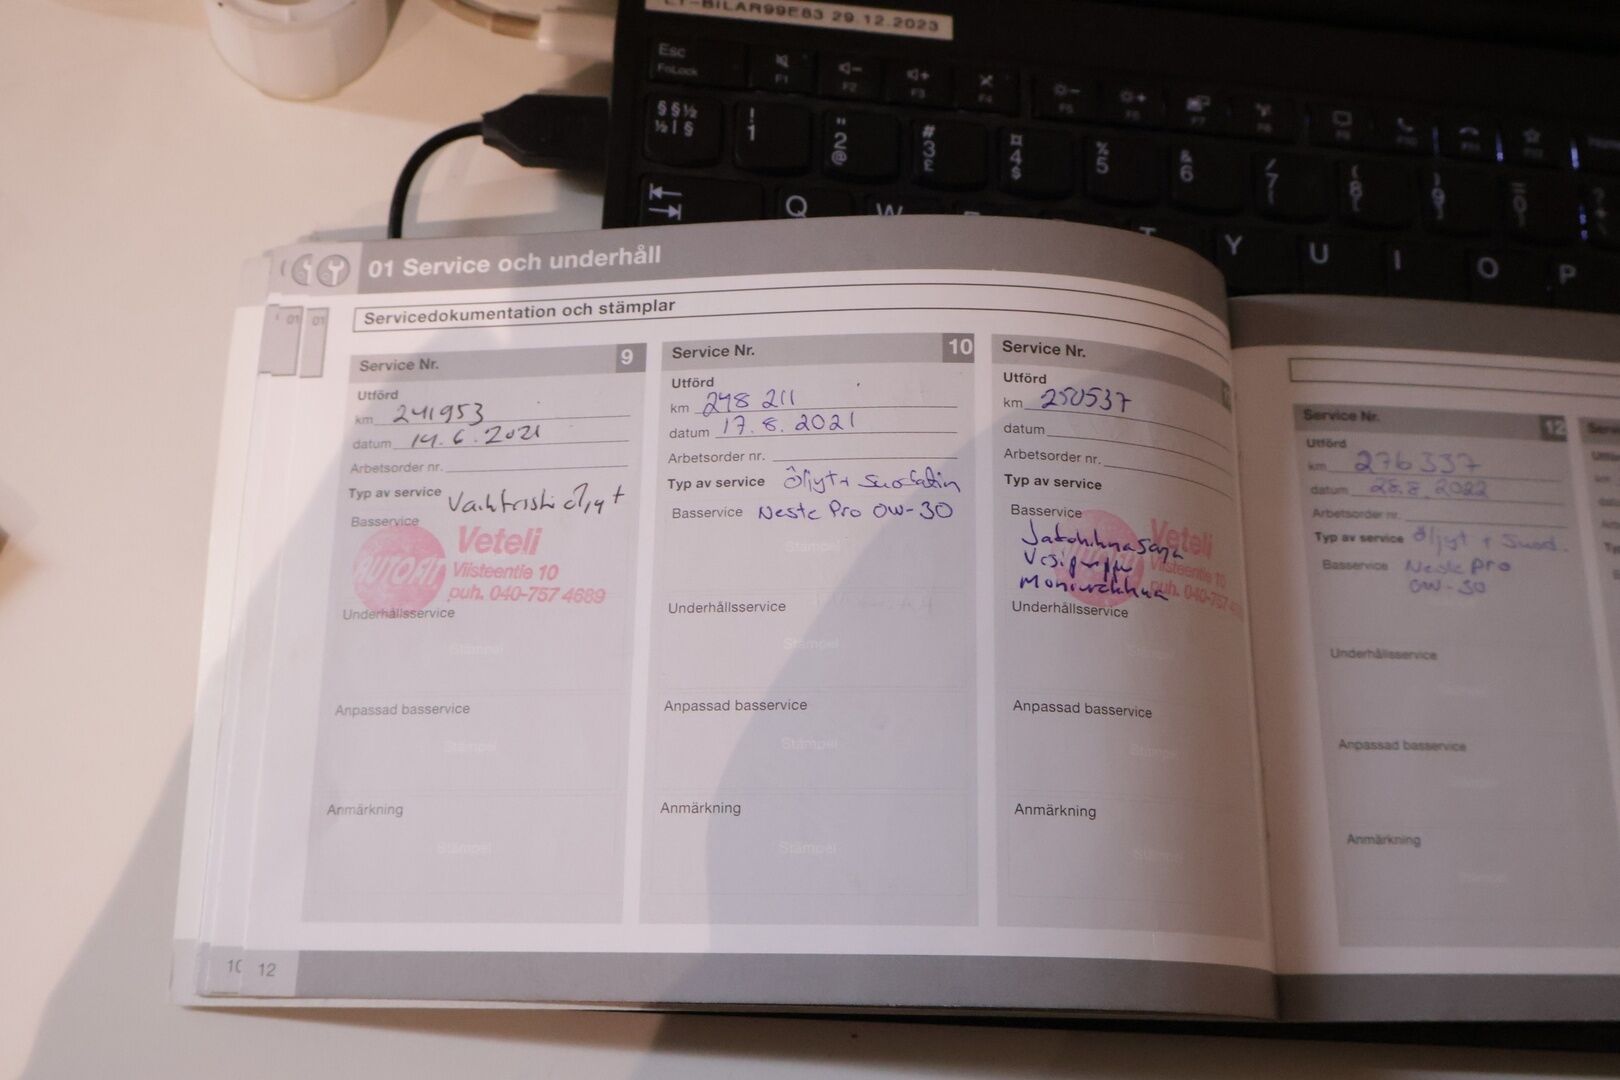 LT-BILAR99E83 29.12.2023
Esc
FnLock
F1
F2
F3
F4
F5
F6
F7
F8
§ § ½
½ | §
!
1
"
2
@
#
3
£
¤
4
$
%
5
&
6
/
7
{
(
8
[
)
9
]
=
0
Q
W
T
Y
U
I
O
P
01 Service och underhåll
Servicedokumentation och stämplar
01
01
Service Nr. 9
Utförd
km 241953
datum 14.6.2021
Arbetsorder nr.
Typ av service
Basservice
AUTOFIT
Veteli
Viisteentie 10
puh. 040-757 4689
Underhållsservice
Stämpel
Anpassad basservice
Stämpel
Anmärkning
Stämpel
Service Nr. 10
Utförd
km 248 211
datum 17.8.2021
Arbetsorder nr.
Typ av service Öljyt + Suodatin
Basservice Neste Pro 0W-30
Stämpel
Underhållsservice
Stämpel
Anpassad basservice
Stämpel
Anmärkning
Stämpel
Service Nr.
Utförd
km 250537
datum
Arbetsorder nr.
Typ av service
Basservice
Jakohihnasarja
Vesipumppu
Moniurahihna
Veteli
Viisteentie 10
puh. 040-757
Underhållsservice
Stämpel
Anpassad basservice
Stämpel
Anmärkning
Stämpel
Service Nr. 12
Utförd
km 276337
datum 28.8.2022
Arbetsorder nr.
Typ av service Öljyt + Suod.
Basservice Neste Pro
0W-30
Underhållsservice
Anpassad basservice
Anmärkning
10
12